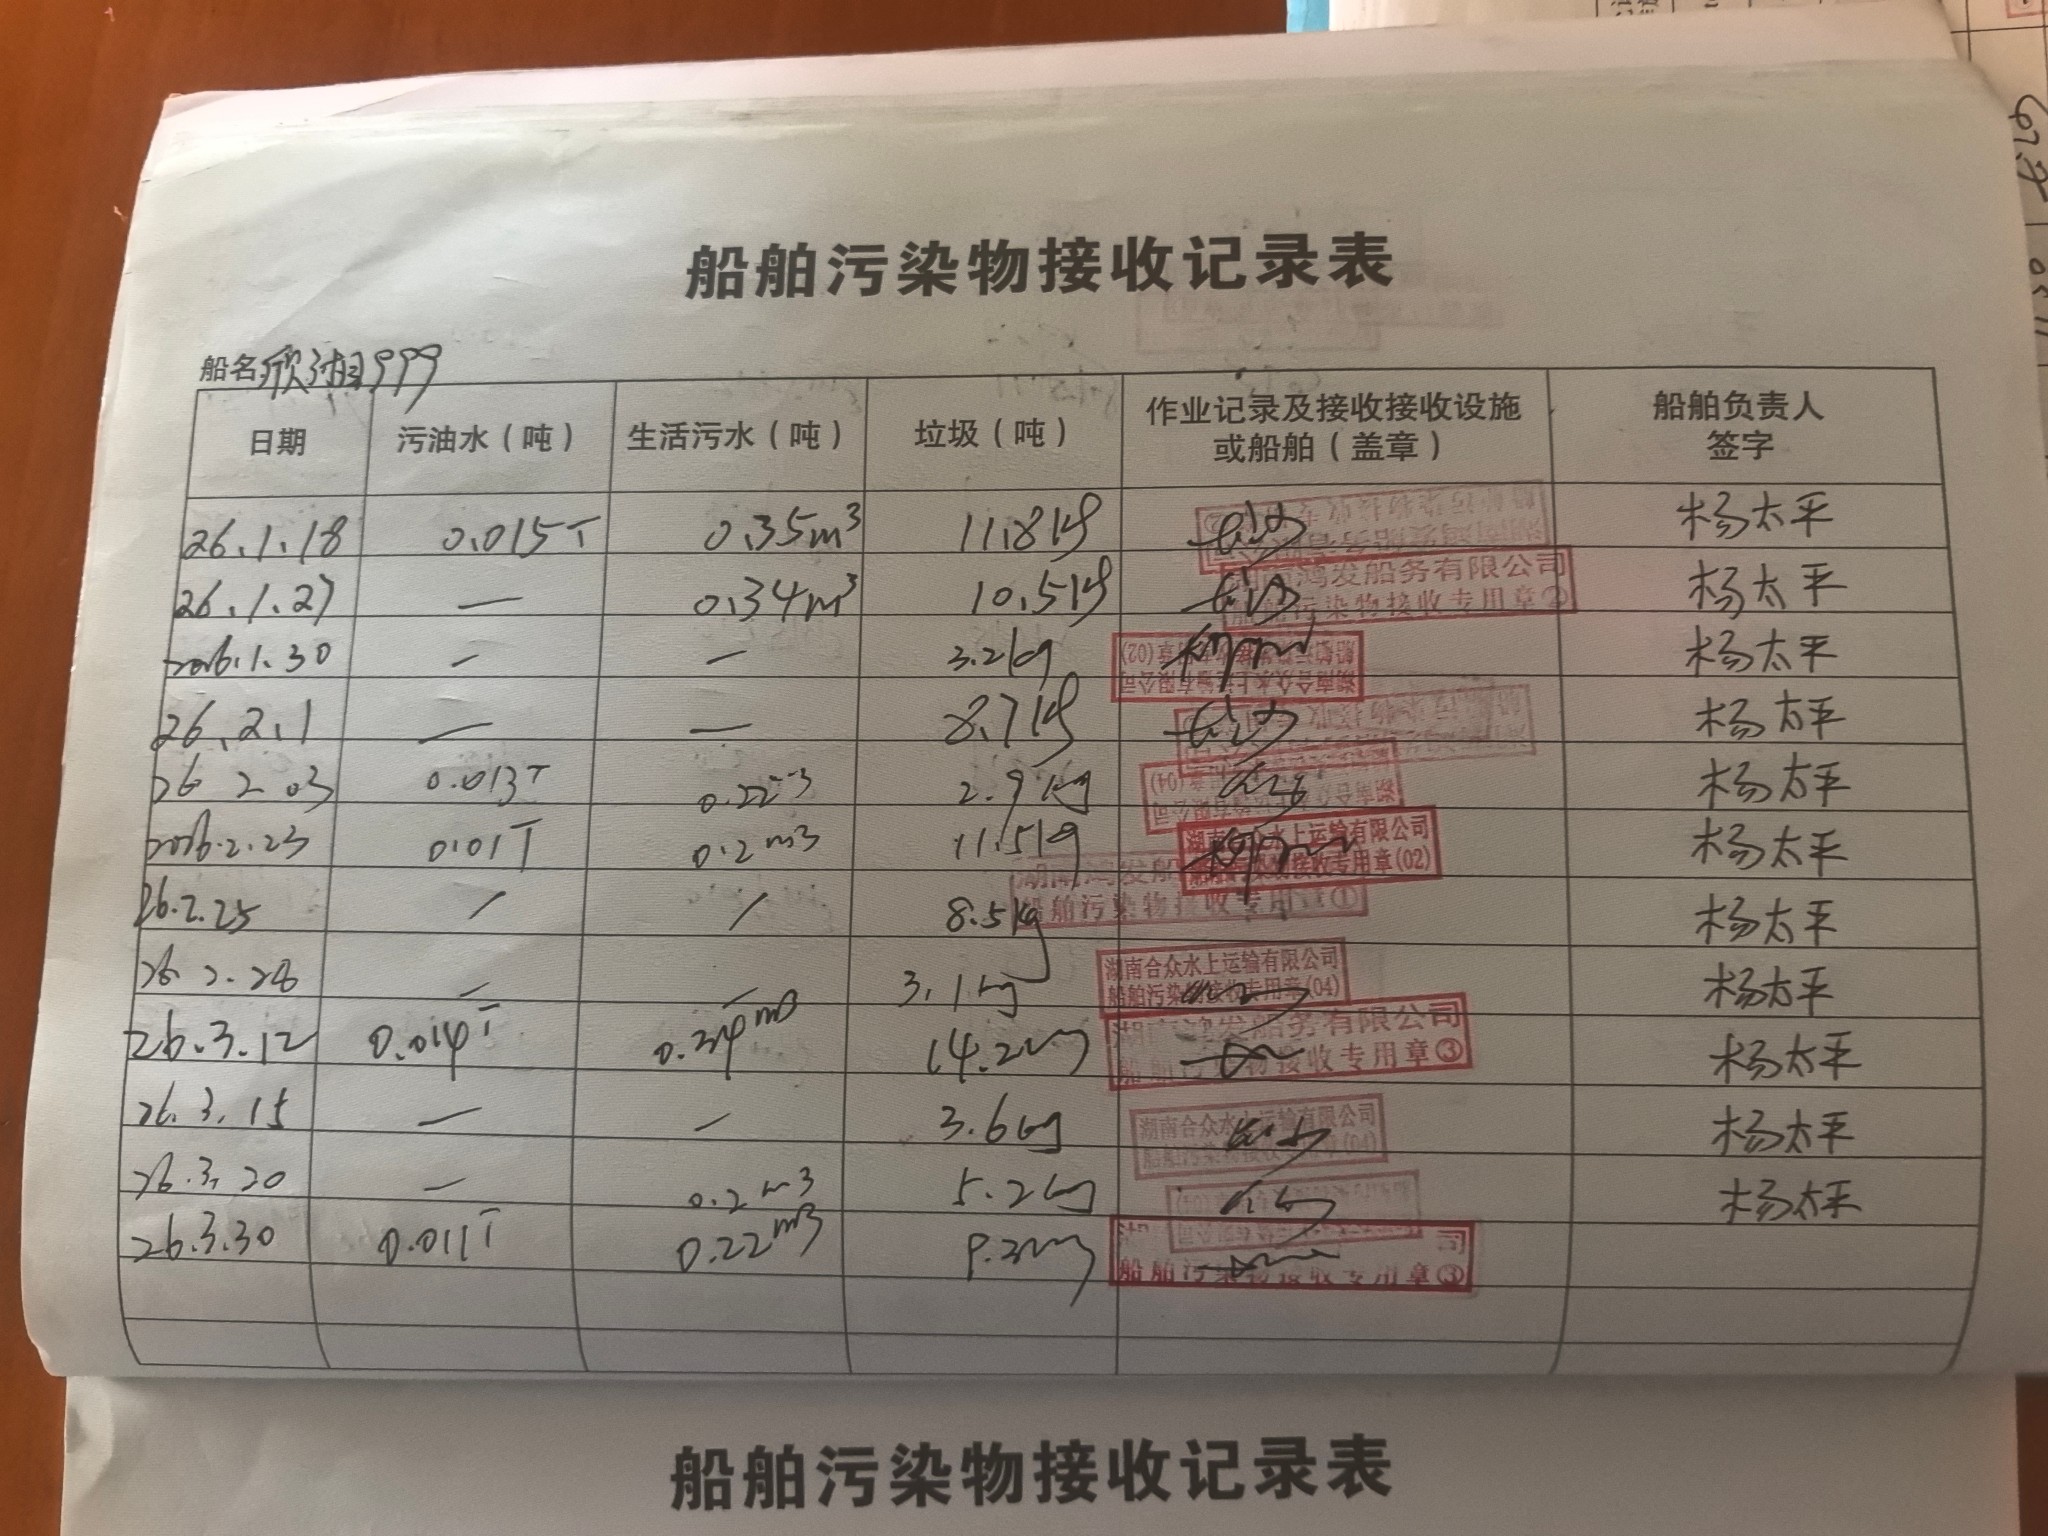 船舶污染物接收记录表
船名 欣湘999
日期 污油水（吨） 生活污水（吨） 垃圾（吨） 作业记录及接收接收设施或船舶（盖章） 船舶负责人签字
26.1.18 0.015T 0.35m³ 11.8kg 杨太平
26.1.27 — 0.34m³ 10.5kg 鸿发船务有限公司 船舶污染物接收专用章② 杨太平
2026.1.30 — — 3.2kg 湖南合众水上运输有限公司 船舶污染物接收专用章(02) 杨太平
26.2.1 — — 8.7kg 杨太平
26 2.03 0.013T 0.22m3 2.9kg 湖南合众水上运输有限公司 (04) 杨太平
2026.2.23 0.01T 0.2m3 11.5kg 湖南合众水上运输有限公司 船舶污染物接收专用章(02) 杨太平
26.2.25 / / 8.5kg 湖南鸿发船 船舶污染物接收专用章① 杨太平
26 2.28 — — 3.1kg 湖南合众水上运输有限公司 船舶污染物接收专用章(04) 杨太平
26.3.12 0.014T 0.34m3 14.2kg 湖南鸿发船务有限公司 船舶污染物接收专用章③ 杨太平
26.3.15 — — 3.6kg 湖南合众水上运输有限公司 船舶污染物接收专用章(04) 杨太平
26.3.20 — 0.2m3 5.2kg 杨太平
26.3.30 0.011T 0.22m3 9.3kg 司 船舶污染物接收专用章③
船舶污染物接收记录表